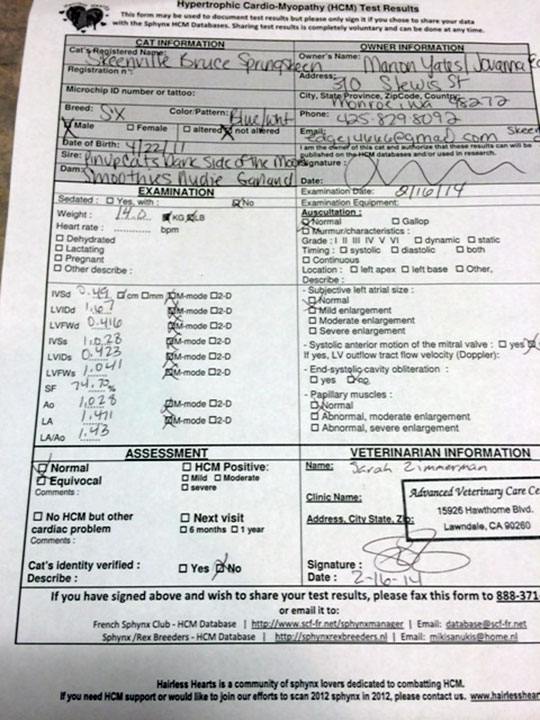 Hypertrophic Cardio-Myopathy (HCM) Test Results
This form may be used to document test results but please only sign it if you chose to share your data
with the Sphynx HCM Databases. Sharing test results is completely voluntary and can be done at any time.
CAT INFORMATION
Cat's Registered Name:
Skeenville Bruce Springskeen
Registration n°:
Microchip ID number or tattoo:
Breed: SX Color/Pattern: Blue/wht
Male □ Female □ altered not altered
Date of Birth: 4/22/11
Sire: Pinupcats Dark Side of the Moon
Dam: Smoothies Nudie Garland
OWNER INFORMATION
Owner's Name:
Marion Yates/Jovanna
Address:
310 S Lewis St
City, State Province, ZipCode, Country:
Monroe, wa 98272
Phone: 425-829 8092
Email:
@gmail.com Skee
I am the owner of this cat and authorize these results can be
published on the HCM databases and/or used in research.
Signature:
Date:
EXAMINATION
Sedated : □ Yes, with : No
Weight : 14.0 KG LB
Heart rate : ............ bpm
□ Dehydrated
□ Lactating
□ Pregnant
□ Other describe :
IVSd 0.49 □ cm □ mm M-mode □ 2-D
LVIDd 1.67 M-mode □ 2-D
LVFWd 0.416 M-mode □ 2-D
IVSs 1.028 M-mode □ 2-D
LVIDs 0.423 M-mode □ 2-D
LVFWs 1.041 M-mode □ 2-D
SF 74.70 %
Ao 1.028 M-mode □ 2-D
LA 1.471 M-mode □ 2-D
LA/Ao 1.43
Examination Date: 2/16/14
Examination Equipment:
Auscultation :
Normal □ Gallop
□ Murmur/characteristics :
Grade : I II III IV V VI □ dynamic □ static
Timing : □ systolic □ diastolic □ both
□ Continuous
Location : □ left apex □ left base □ Other,
Describe :
- Subjective left atrial size :
Normal
Mild enlargement
□ Moderate enlargement
□ Severe enlargement
- Systolic anterior motion of the mitral valve : □ yes
If yes, LV outflow tract flow velocity (Doppler):
- End-systolic cavity obliteration :
□ yes no
- Papillary muscles :
Normal
□ Abnormal, moderate enlargement
□ Abnormal, severe enlargement
ASSESSMENT
Normal
□ Equivocal
Comments :
□ HCM Positive:
□ Mild □ Moderate
□ severe
□ No HCM but other
cardiac problem
Comments :
□ Next visit
□ 6 months □ 1 year
Cat's identity verified : □ Yes No
Describe :
VETERINARIAN INFORMATION
Name: Sarah Zimmerman
Clinic Name:
Address, City State, Zip:
Advanced Veterinary Care Ce
15926 Hawthorne Blvd.
Lawndale, CA 90260
Signature :
Date : 2-16-14
If you have signed above and wish to share your test results, please fax this form to 888-371-
or email it to:
French Sphynx Club - HCM Database | http://www.scf-fr.net/sphynxmanager | Email: database@scf-fr.net
Sphynx /Rex Breeders - HCM Database | http://sphynxrexbreeders.nl | Email: mikisanukis@home.nl
Hairless Hearts is a community of sphynx lovers dedicated to combatting HCM.
If you need HCM support or would like to join our efforts to scan 2012 sphynx in 2012, please contact us. www.hairlesshear